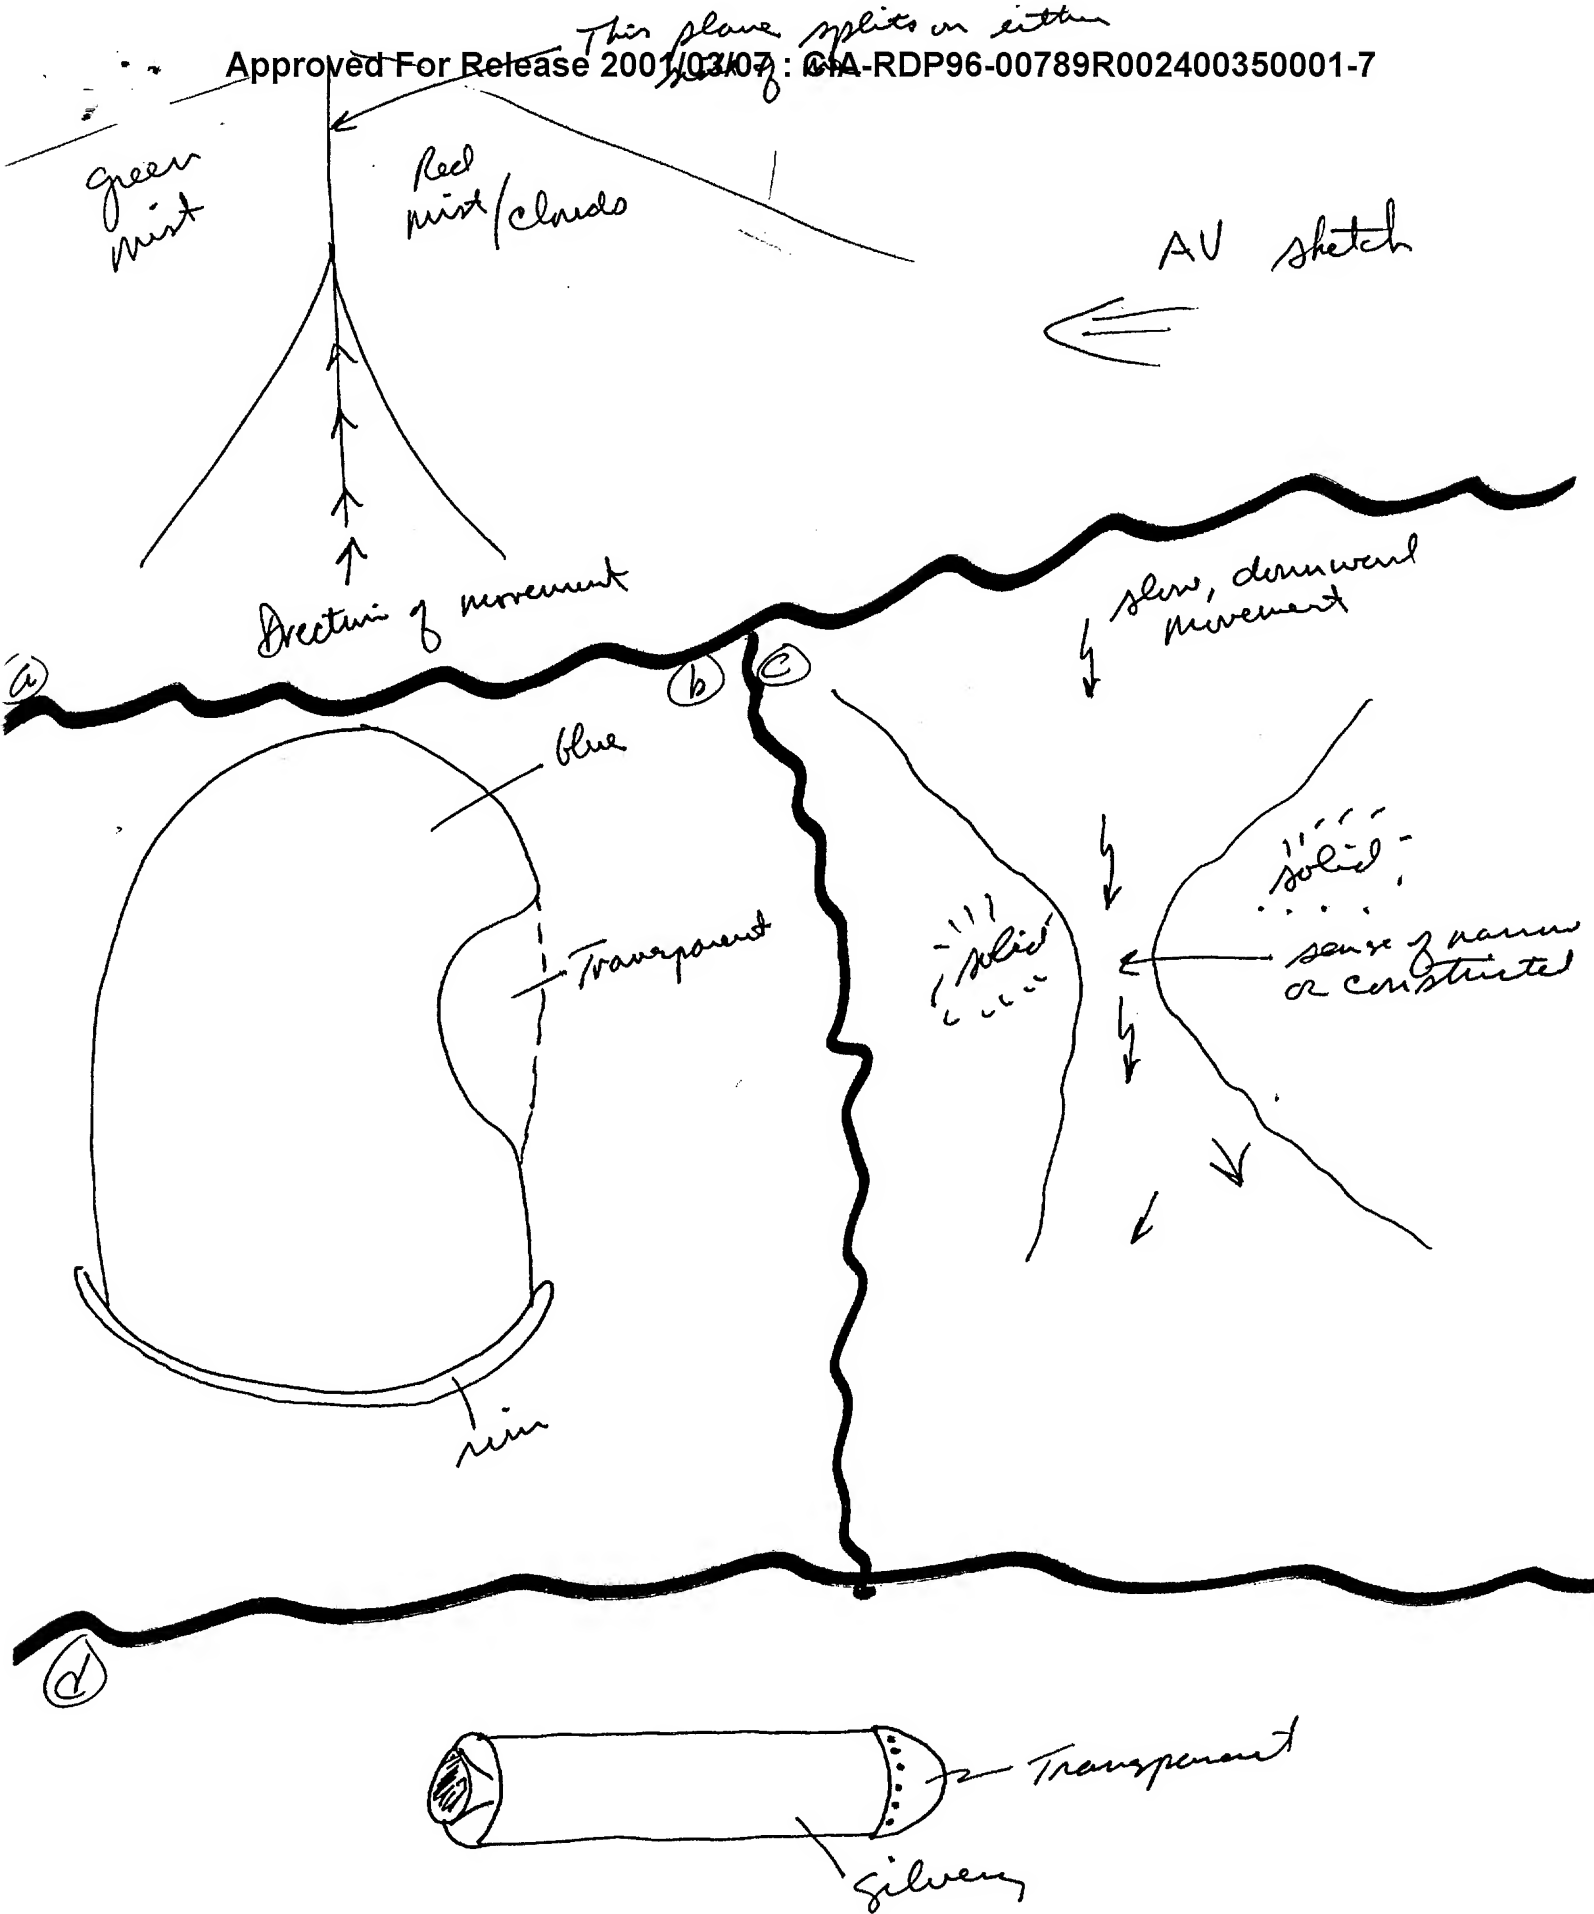 This plane splits on either
Approved For Release 2001/03/07 : CIA-RDP96-00789R002400350001-7
side of
green
mist
Red
mist/clouds
AV sketch
Direction of movement
a
b
c
slow, downward
movement
blue
Transparent
solid
solid
sense of narrow
or constricted
rim
d
Transparent
Silvery